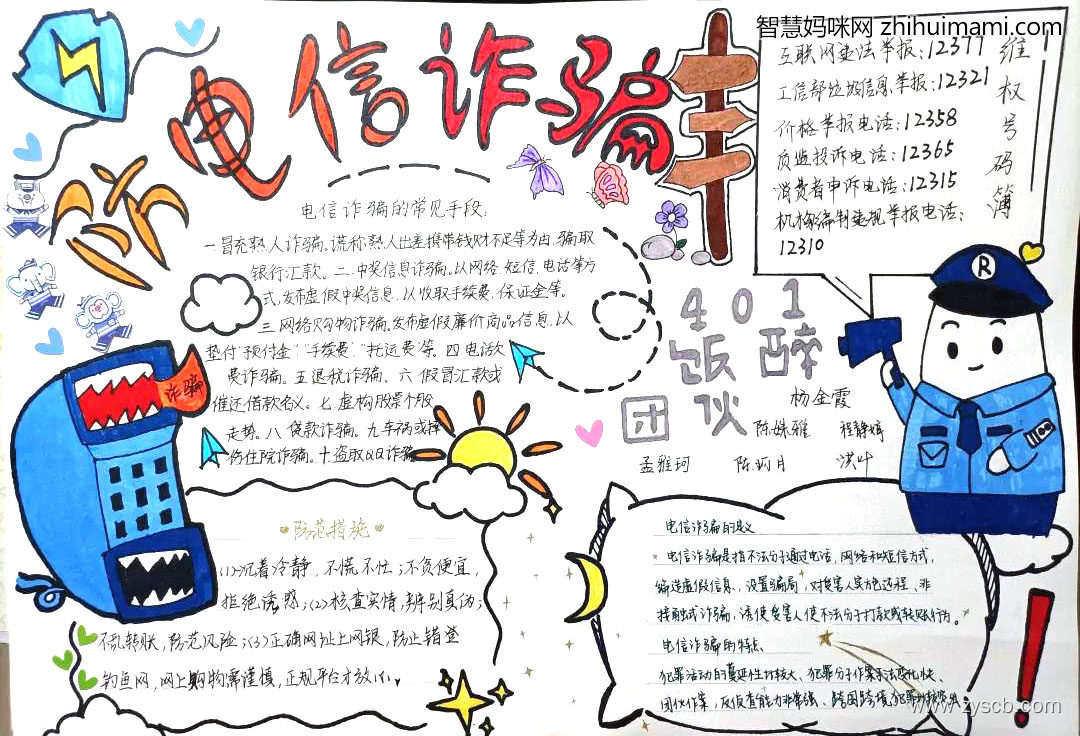 智慧妈咪网 zhihuimami.com
防电信诈骗
互联网违法举报:12377
工信部垃圾信息举报:12321
价格举报电话:12358
质监投诉电话:12365
消费者申诉电话:12315
机构编制违规举报电话:
12310
维权号码簿
R
110
电信诈骗的常见手段:
一冒充熟人诈骗。谎称熟人出差携带钱财不足等为由,骗取
银行汇款。二.中奖信息诈骗。以网络.短信.电话等方
式,发布虚假中奖信息,以收取手续费.保证金等。
三.网络购物诈骗。发布虚假廉价商品信息,以
垫付"预付金""手续费""托运费"等。四.电话欠
费诈骗。五.退税诈骗。六.假冒汇款或
催还借款名义。七.虚构股票个股
走势。八.贷款诈骗。九.车祸或摔
伤住院诈骗。十.盗取QQ诈骗
诈骗
401
饭醉
团伙
杨金霞
陈姝雅 程静
孟雅珂 陈 月 洪叶
防范措施
(1)沉着冷静,不慌不忙;不贪便宜,
拒绝诱惑;(2)核查实情,辨别真伪;
不乱转账,防范风险;(3)正确网址上网银,防止错登
钓鱼网,网上购物需谨慎,正规平台才放心。
电信诈骗的定义
电信诈骗是指不法分子通过电话,网络和短信方式,
编造虚假信息,设置骗局,对受害人实施远程、非
接触式诈骗,诱使受害人使不法分子打款或转账行为。
电信诈骗的特点
犯罪活动的蔓延性比较大、犯罪分子作案手法变化快、
团伙作案,反侦查能力非常强、跨国跨境犯罪比较突出
www.zyscb.com